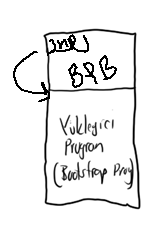 JMP
BPB
Yükleyici
Program
(Bootstrap Prog)